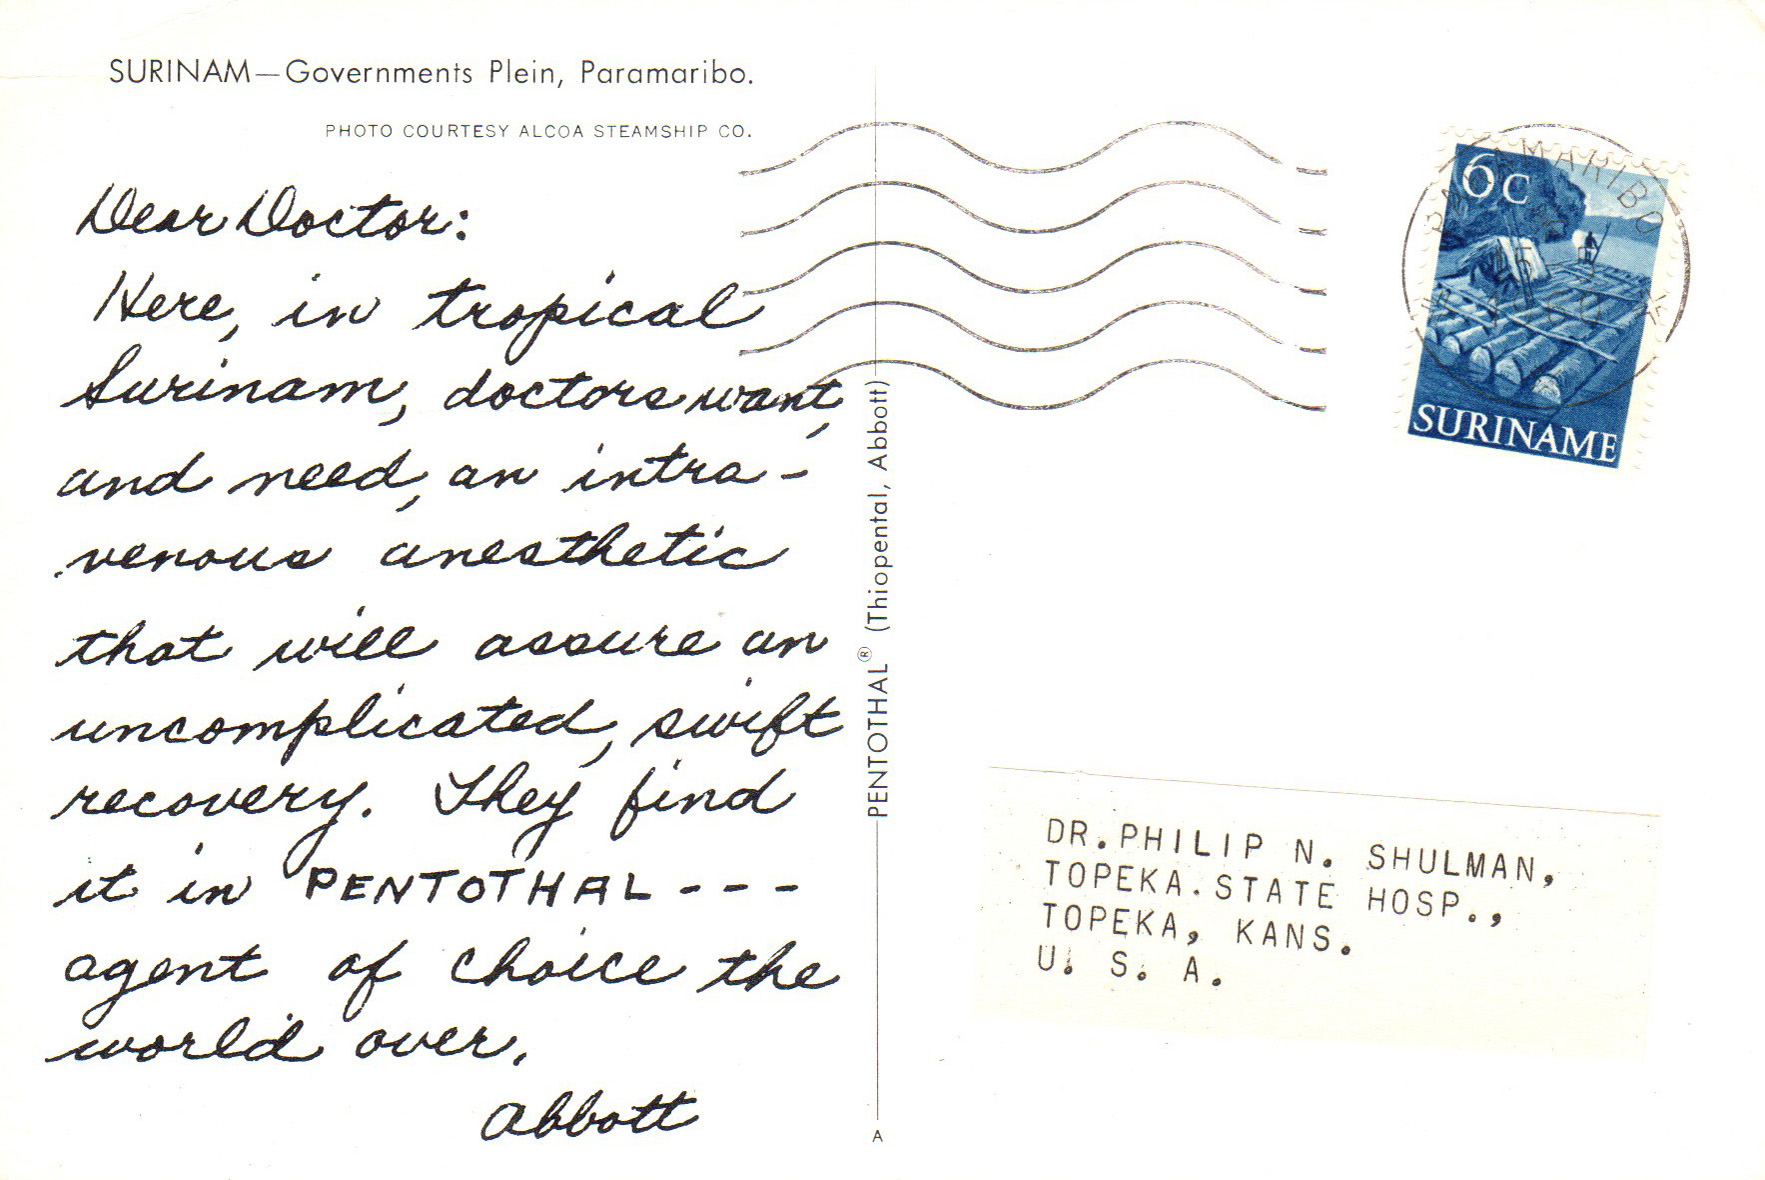 SURINAM—Governments Plein, Paramaribo.
PHOTO COURTESY ALCOA STEAMSHIP CO.
Dear Doctor:
Here, in tropical
Surinam, doctors want,
and need, an intra-
venous anesthetic
that will assure an
uncomplicated, swift
recovery. They find
it in PENTOTHAL---
agent of choice the
world over.
Abbott
PENTOTHAL® (Thiopental, Abbott)
A
PARAMARIBO
6c
SURINAME
DR.PHILIP N. SHULMAN,
TOPEKA.STATE HOSP.,
TOPEKA, KANS.
U. S. A.